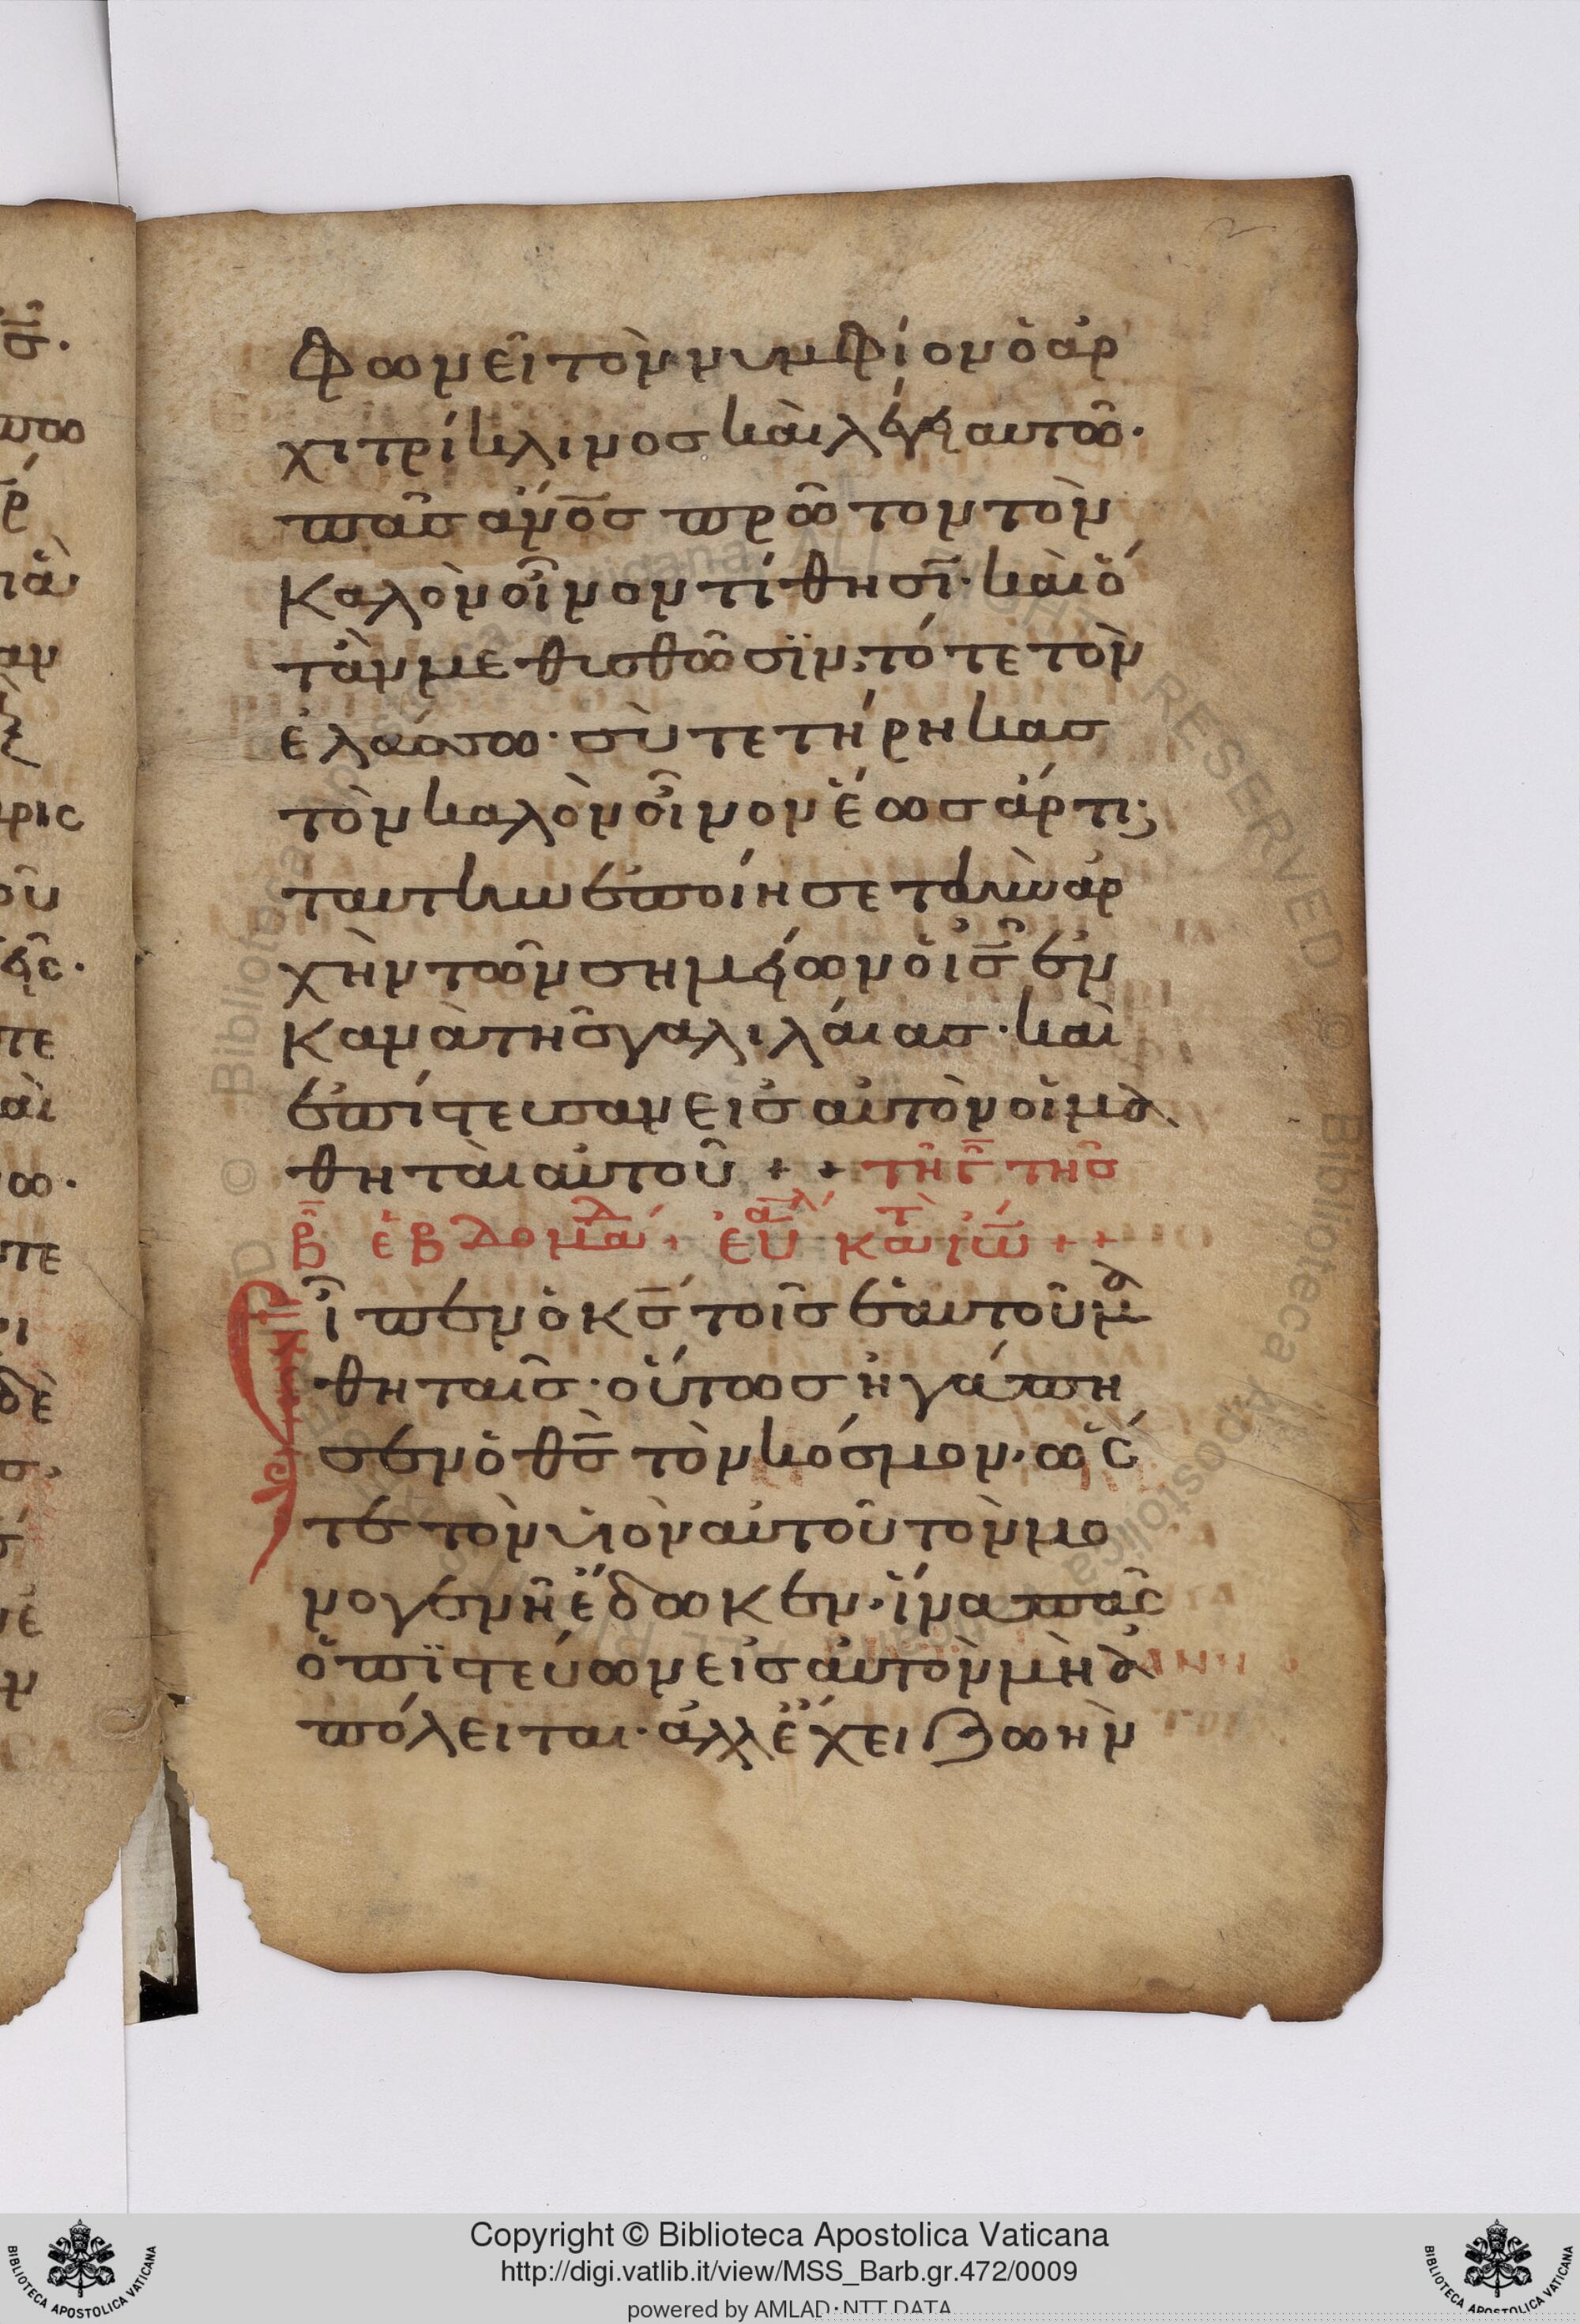 φωνεῖ τὸν νυμφίον ὁ ἀρ
χιτρίκλινος καὶ λέγει αυτῶ·
πᾶς ἄνος πρῶτον τὸν
καλὸν οἶνον τίθησι· καὶ ὅ
τὰν μεθυσθῶσϊν; τότε τὸν
ἐλάσσω· σὺ τετήρηκας
τὸν καλὸν οἶνον ἕως ἄρτι;
ταυτην ἐποίησε τὴν ἀρ
χὴν τῶν σημείων ὁ ις ἐν
κανὰ τῆς γαλιλάιας· καὶ
ἐπίστευσαν εις αὐτὸν οἱ μα
θηταὶ αὐτοῦ + + τῆ γ τῆς
β ἑβδομαδ + ἐυαγλ κατ ἰω + +
Εἶπεν ὁ κς τοῖς ἑαυτοῦ μα
θηταῖς· οὕτως ἠγάπη
σεν ὁ θς τὸν κόσμον· ὥς
τε τὸν υἱὸν αὐτοῦ τὸν μο
νογενῆ ἔδωκεν· ἵνα πᾶς
ὁ πϊστεύων εἰς αὐτὸν μὴ ἀ
πόλειται· ἀλλ ἔχει ζωὴν
Copyright © Biblioteca Apostolica Vaticana
http://digi.vatlib.it/view/MSS_Barb.gr.472/0009
powered by AMLAD·NTT DATA